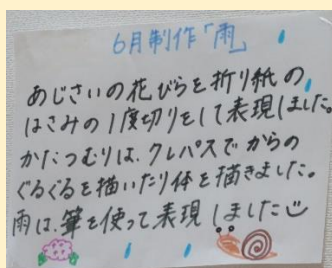 6月制作「雨」
あじさいの花びらを折り紙の
はさみの1度切りをして表現しました。
かたつむりは、クレパスでからの
ぐるぐるを描いたり体を描きました。
雨は、筆を使って表現しました